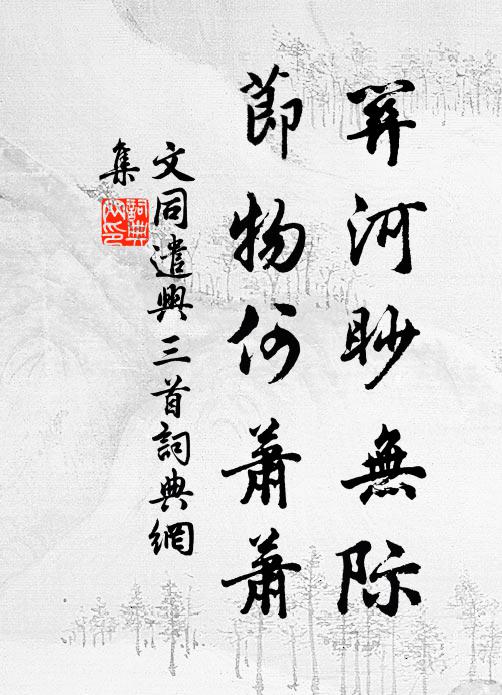 關河眇無际
節物何蕭蕭
文同遣興三首詞典網
集
詞典
网印